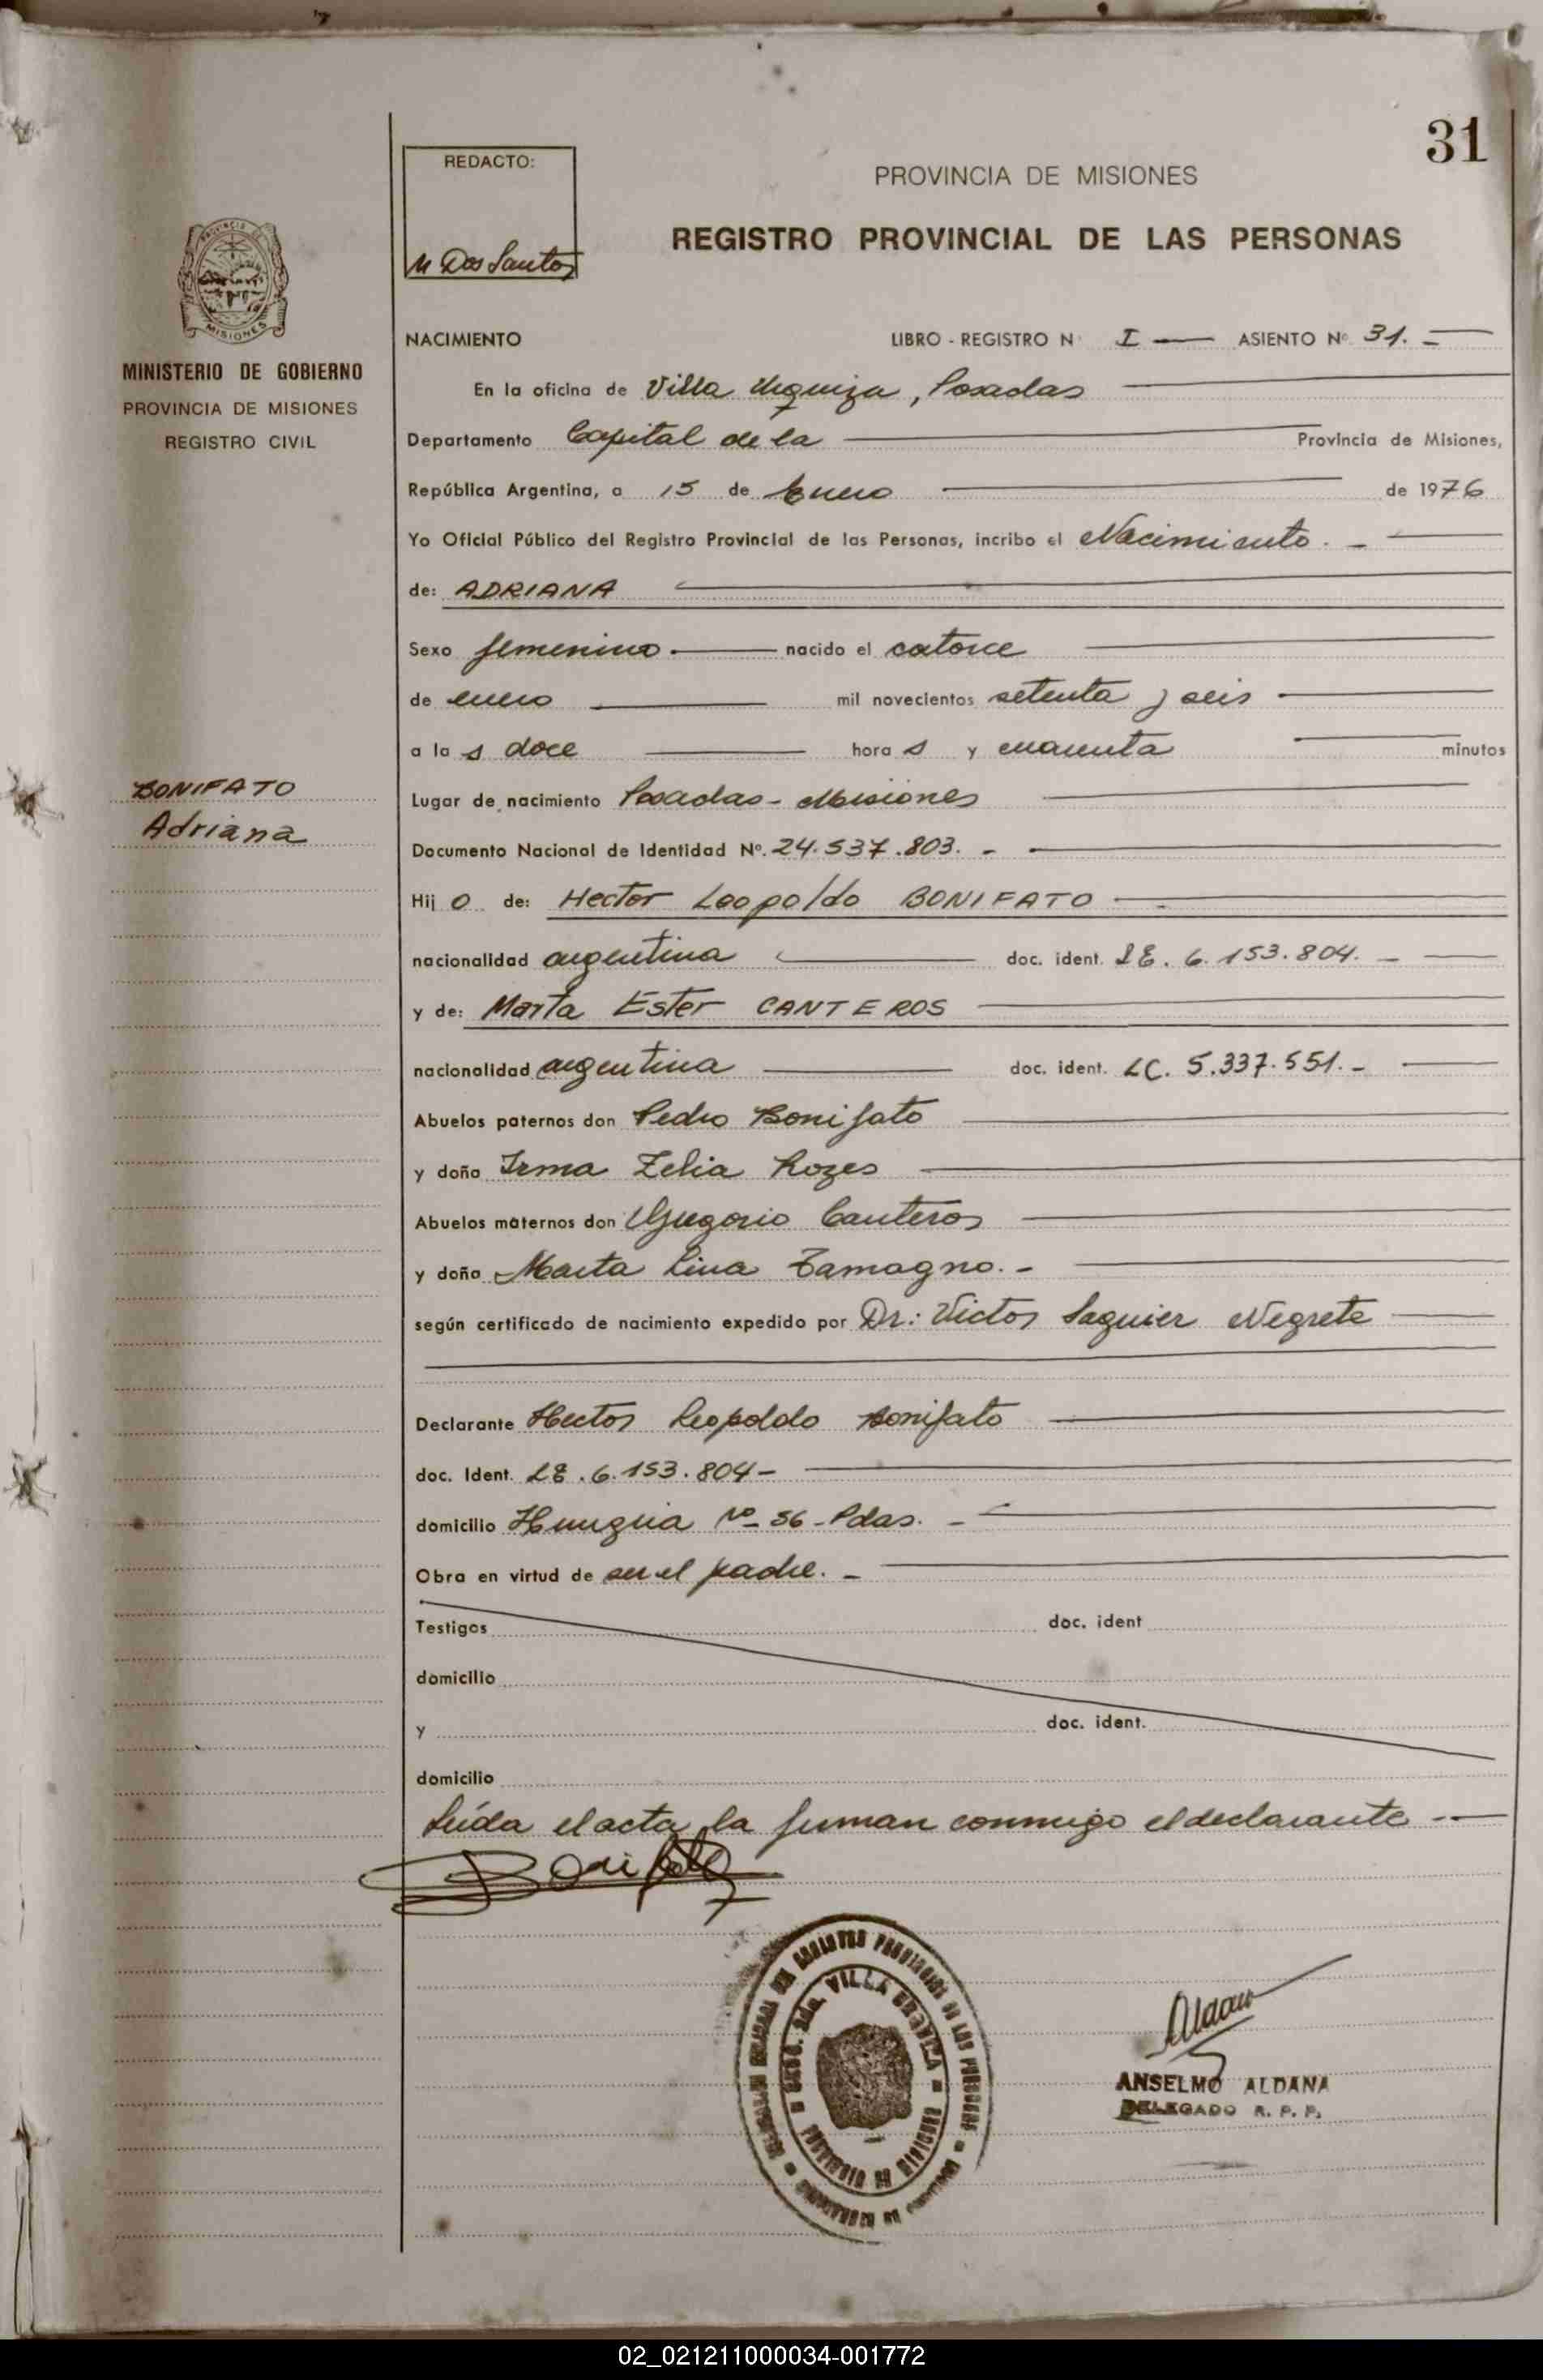 31
REDACTO:
M Dos Santos
PROVINCIA DE MISIONES
REGISTRO PROVINCIAL DE LAS PERSONAS
MISIONES
MINISTERIO DE GOBIERNO
PROVINCIA DE MISIONES
REGISTRO CIVIL
BONIFATO
Adriana
NACIMIENTO LIBRO - REGISTRO Nº I ASIENTO Nº 31. -
En la oficina de Villa Urquiza, Posadas
Departamento Capital de la Provincia de Misiones,
República Argentina, a 15 de Enero de 1976
Yo Oficial Público del Registro Provincial de las Personas, incribo el Nacimiento. -
de: ADRIANA
Sexo femenino. nacido el catorce
de enero mil novecientos setenta y seis
a la s doce hora s y cuarenta minutos
Lugar de nacimiento Posadas - Misiones
Documento Nacional de Identidad Nº. 24.537.803. -
Hij o de: Hector Leopoldo BONIFATO
nacionalidad argentina doc. ident. LE. 6.153.804. -
y de: Marta Ester CANTEROS
nacionalidad argentina doc. ident. LC. 5.337.551. -
Abuelos paternos don Pedro Bonifato
y doña Irma Zelia Rozes
Abuelos maternos don Gregorio Canteros
y doña Marta Lina Tamagno. -
según certificado de nacimiento expedido por Dr.: Victor Saguier Negrete
Declarante Hector Leopoldo Bonifato
doc. Ident. LE. 6.153.804 -
domicilio Hungria Nº 56 - Pdas. -
Obra en virtud de ser el padre. -
Testigos doc. ident
domicilio
y doc. ident.
domicilio
Leída el acta, la firman conmigo el declarante -
Bonifato
VILLA URQUIZA
PROVINCIA DE MISIONES
Aldana
ANSELMO ALDANA
DELEGADO R. P. P.
02_021211000034-001772